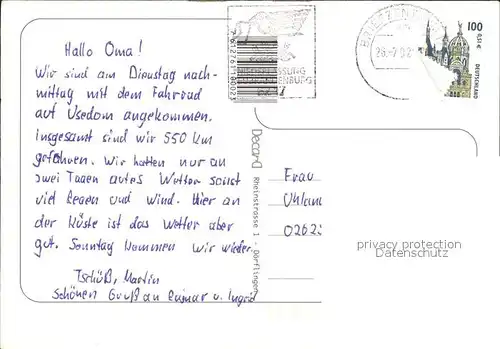 Hallo Oma!
Wir sind am Dienstag nach-
mittag mit dem Fahrrad
auf Usedom angekommen.
Insgesamt sind wir 550 km
gefahren. Wir hatten nur an
zwei Tagen gutes Wetter sonst
viel Regen und Wind. Hier an
der Küste ist das Wetter aber
gut. Sonntag kommen wir wieder.
Tschüß, Martin
Schönen Gruß an Rainar u. Ingrid
Decard
Rheinstrasse 1 - Dörflingen
NIEDERLASSUNG
100
0,51€
DEUTSCHLAND
Frau
0262
privacy protection
Datenschutz